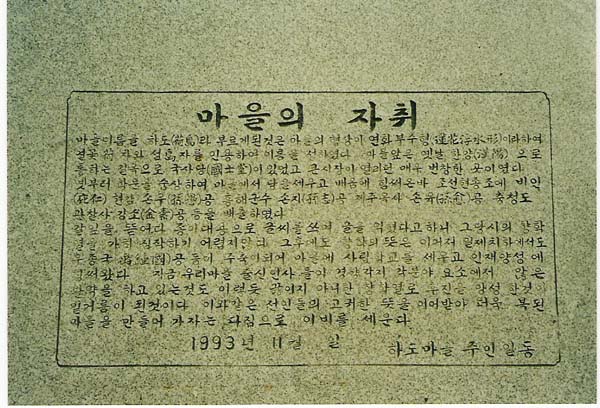 마을의 자취
마을이름을 하도(荷島)라 부르게된것은 마을의 형상이 연화부수형(蓮花浮水形)이라하여
연꽃荷 자와 섬島자를 인용하여 이름을 마을앞은 옛날 한강(漢陽) 으로
통하는 길목으로 국사당(國士堂)이있었고 큰시장이 열리던 매우 번창한 곳이였다
옛부터 학문을 숭상하여 마을에서 세우고 배움에 힘써온바 조선현종조에 비익
현감 손우 공 흥해군수 손지 공 제주목사 손유 공 충청도
관찰사 김소 공 등을 배출하였다
갈잎을 뜯어다 종이대용으로 글씨를쓰며 글을 익혔다고하니 그당시의 향학
열을 가히 짐작하기 어렵지않다 그후에도 향학의뜻은 이어져 일제치하에서도
공 등이 주축이되어 마을에 사립학교를 세우고 인재양성 에
힘써왔다 지금 우리마을 출신인사 들이 경향각지 각분야 요소에서 많은
활약을 하고 있는것도 이렇듯 남이지 아니한 향학열로 후진을 양성 한것이
밑거름이 된것이다 이와같은 선인들의 고귀한 뜻을 이어받아 더욱 복된
마을을 만들어 가자는 다짐으로 이비를 세운다
1993년 11월 일
하도마을 주민일동